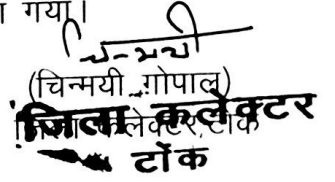 गया।
चिन्मयी
(चिन्मयी गोपाल)
जिला कलेक्टर, टोंक
जिला कलेक्टर
टोंक